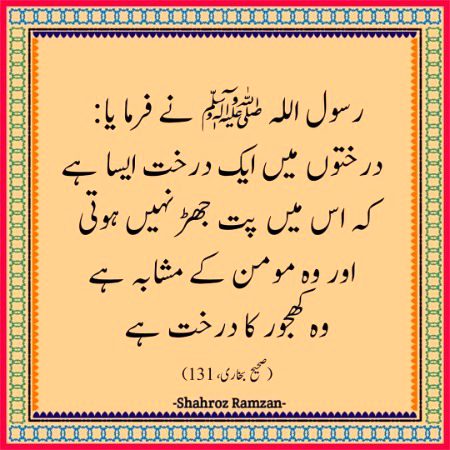 رسول اللہ ﷺ نے فرمایا:
درختوں میں ایک درخت ایسا ہے
کہ اس میں پت جھڑ نہیں ہوتی
اور وہ مومن کے مشابہ ہے
وہ کھجور کا درخت ہے
(صحیح بخاری، 131)
-Shahroz Ramzan-